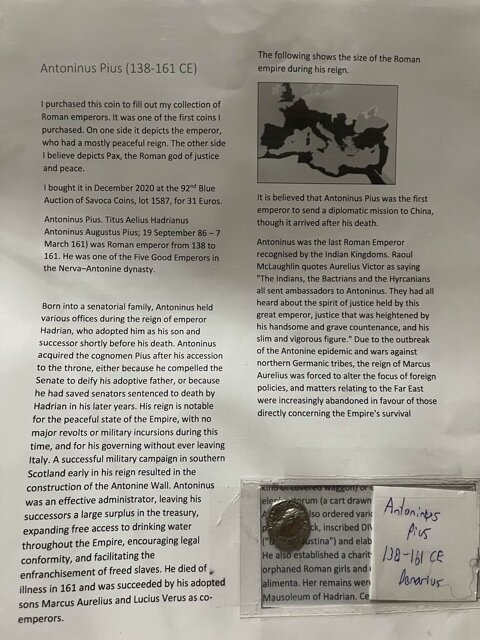 Antoninus Pius (138-161 CE)
I purchased this coin to fill out my collection of
Roman emperors. It was one of the first coins I
purchased. On one side it depicts the emperor,
who had a mostly peaceful reign. The other side
I believe depicts Pax, the Roman god of justice
and peace.
I bought it in December 2020 at the 92nd Blue
Auction of Savoca Coins, lot 1587, for 31 Euros.
Antoninus Pius. Titus Aelius Hadrianus
Antoninus Augustus Pius; 19 September 86 – 7
March 161) was Roman emperor from 138 to
161. He was one of the Five Good Emperors in
the Nerva–Antonine dynasty.
Born into a senatorial family, Antoninus held
various offices during the reign of emperor
Hadrian, who adopted him as his son and
successor shortly before his death. Antoninus
acquired the cognomen Pius after his accession
to the throne, either because he compelled the
Senate to deify his adoptive father, or because
he had saved senators sentenced to death by
Hadrian in his later years. His reign is notable
for the peaceful state of the Empire, with no
major revolts or military incursions during this
time, and for his governing without ever leaving
Italy. A successful military campaign in southern
Scotland early in his reign resulted in the
construction of the Antonine Wall. Antoninus
was an effective administrator, leaving his
successors a large surplus in the treasury,
expanding free access to drinking water
throughout the Empire, encouraging legal
conformity, and facilitating the
enfranchisement of freed slaves. He died of
illness in 161 and was succeeded by his adopted
sons Marcus Aurelius and Lucius Verus as co-
emperors.
The following shows the size of the Roman
empire during his reign.
It is believed that Antoninus Pius was the first
emperor to send a diplomatic mission to China,
though it arrived after his death.
Antoninus was the last Roman Emperor
recognised by the Indian Kingdoms. Raoul
McLaughlin quotes Aurelius Victor as saying
"The Indians, the Bactrians and the Hyrcanians
all sent ambassadors to Antoninus. They had all
heard about the spirit of justice held by this
great emperor, justice that was heightened by
his handsome and grave countenance, and his
slim and vigorous figure." Due to the outbreak
of the Antonine epidemic and wars against
northern Germanic tribes, the reign of Marcus
Aurelius was forced to alter the focus of foreign
policies, and matters relating to the Far East
were increasingly abandoned in favour of those
directly concerning the Empire's survival
kind of covered waggon) or
(a cart drawn
also ordered vario
inscribed DIV
and elab
He also established a charit
orphaned Roman girls and
alimenta. Her remains were
Mausoleum of Hadrian. Ce
Antoninus
Pius
138-161 CE
Denarius